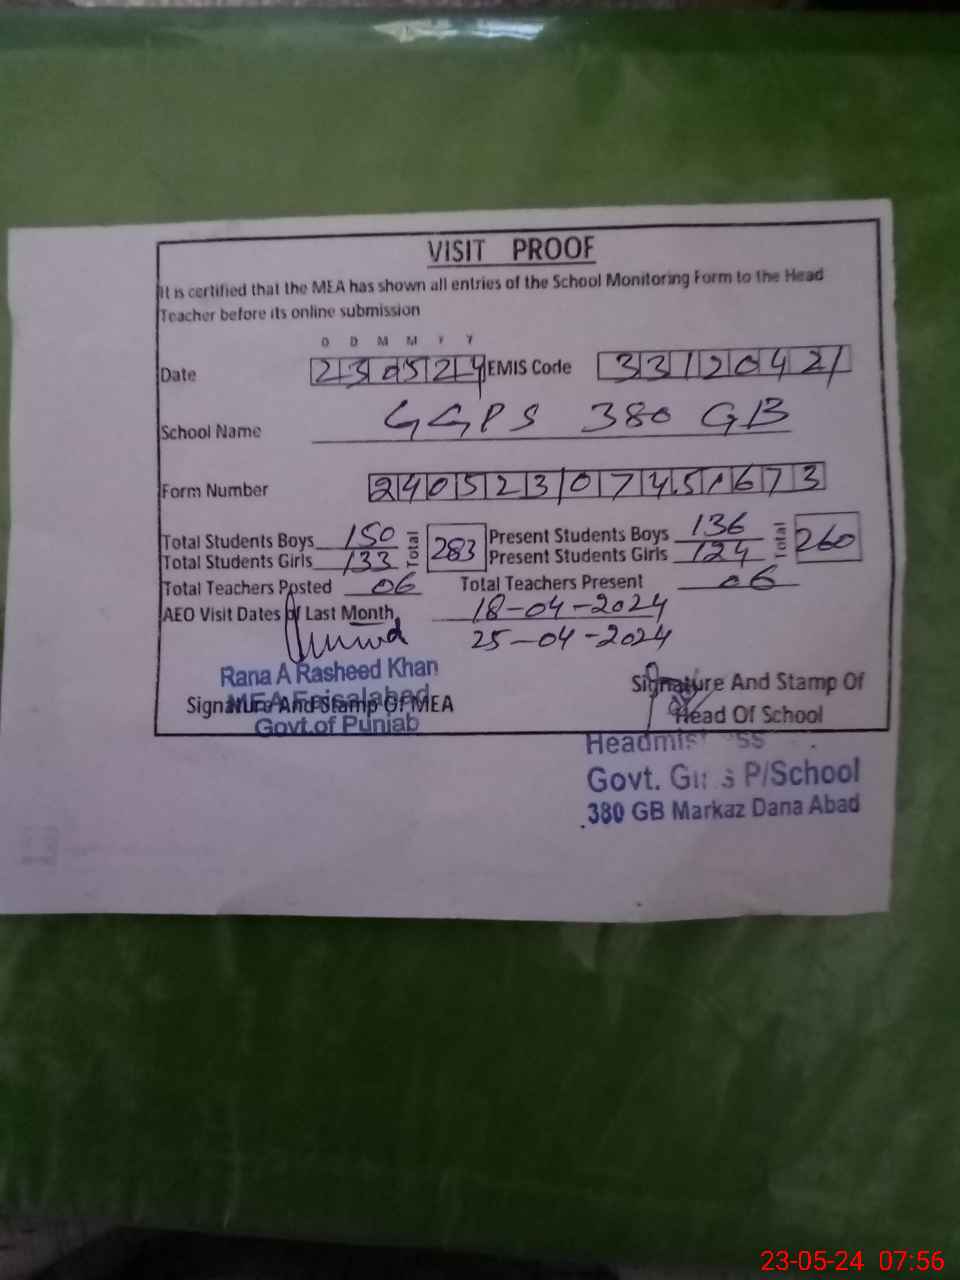 VISIT PROOF
It is certified that the MEA has shown all entries of the School Monitoring Form to the Head
Teacher before its online submission
D D M M Y Y
Date 230524 EMIS Code 33120421
School Name GGPS 380 GB
Form Number 2405230745
Total Students Boys 150 Total 283 Present Students Boys 136 Total 260
Total Students Girls 133 Present Students Girls 124
Total Teachers Posted 06 Total Teachers Present 06
AEO Visit Dates of Last Month 18-04-2024
25-04-2024
Rana A Rasheed Khan
MEA Faisalabad
Signature And Stamp Of MEA
Govt.of Punjab
Signature And Stamp Of
Head Of School
Headmistress
Govt. Girls P/School
380 GB Markaz Dana Abad
23-05-24 07:56